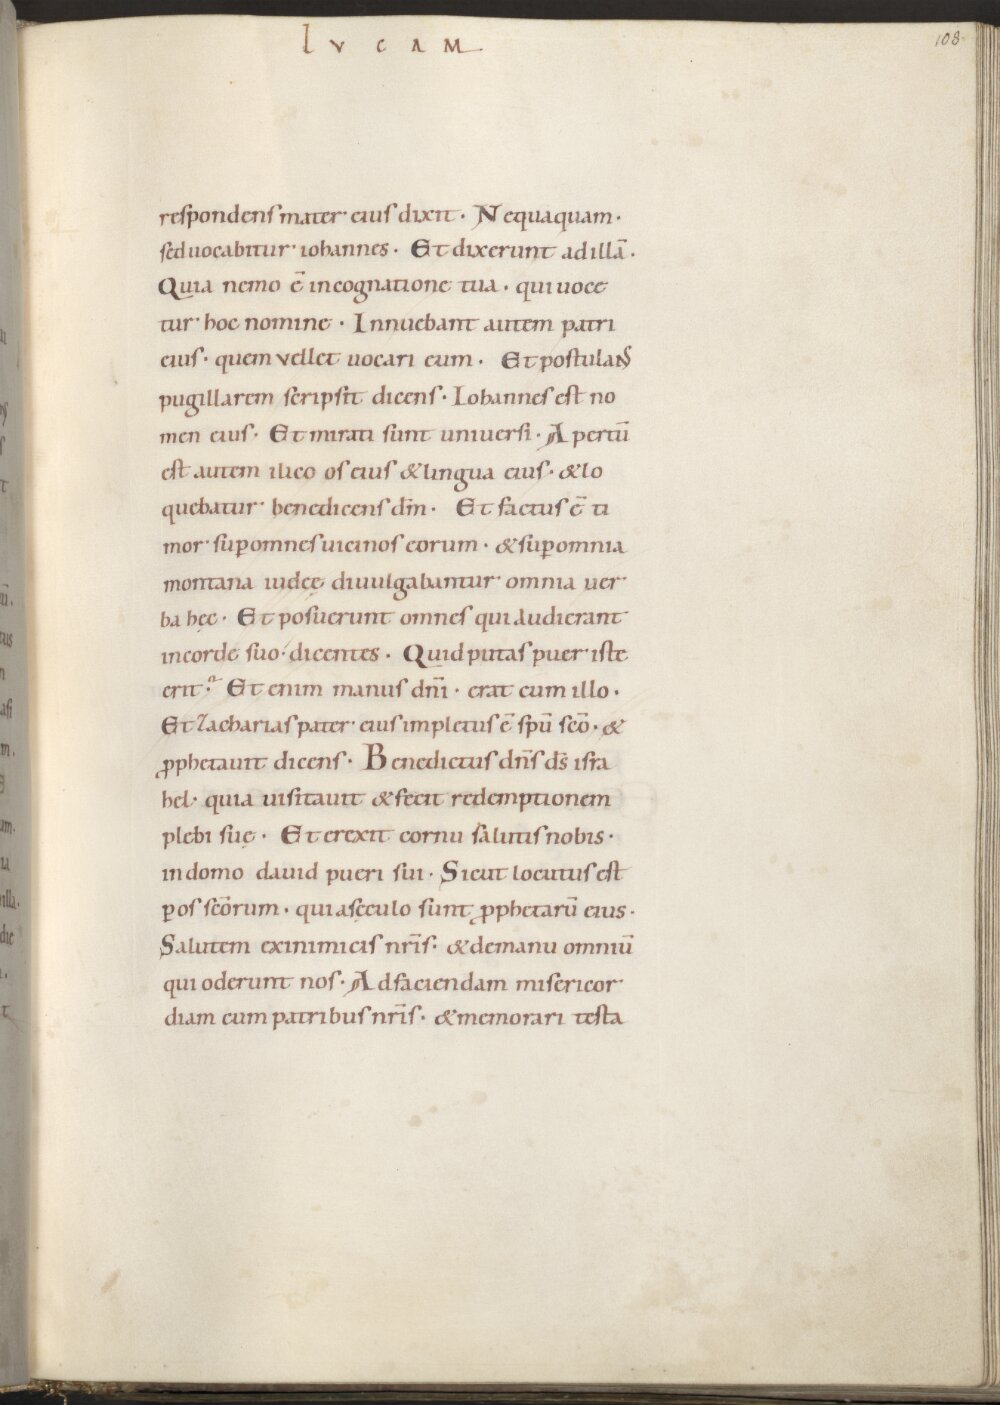 lVCAM
108
respondens mater eius dixit· Nequaquam·
sed uocabitur iohannes· Et dixerunt ad illā·
Quia nemo ē in cognatione tua· qui uoce
tur hoc nomine· Innuebant autem patri
eius· quem vellet uocari eum· Et postulans
pugillarem scripsit dicens· Iohannes est no
men eius· Et mirati sunt uniuersi· Apertū
est autem ilico os eius & lingua eius· & lo
quebatur benedicens dm̄· Et factus ē ti
mor sup omnes uicinos eorum· & sup omnia
montana iudeę diuulgabantur omnia uer
ba hęc· Et posuerunt omnes qui audierant
in corde suo· dicentes· Quid putas puer iste
erit· Et enim manus dn̄i· erat cum illo·
Et Zacharias pater eius impletus ē spū scō· &
ꝓphetauit dicens· Benedictus dn̄s ds̄ isra
hel· quia uisitauit & fecit redemptionem
plebi suę· Et erexit cornu salutis nobis·
in domo dauid pueri sui· Sicut locutus est
p os scōrum· qui a sęculo sunt ꝓphetarū eius·
Salutem ex inimicis nr̄is· & de manu omniū
qui oderunt nos· Ad faciendam misericor
diam cum patribus nr̄is· & memorari testa